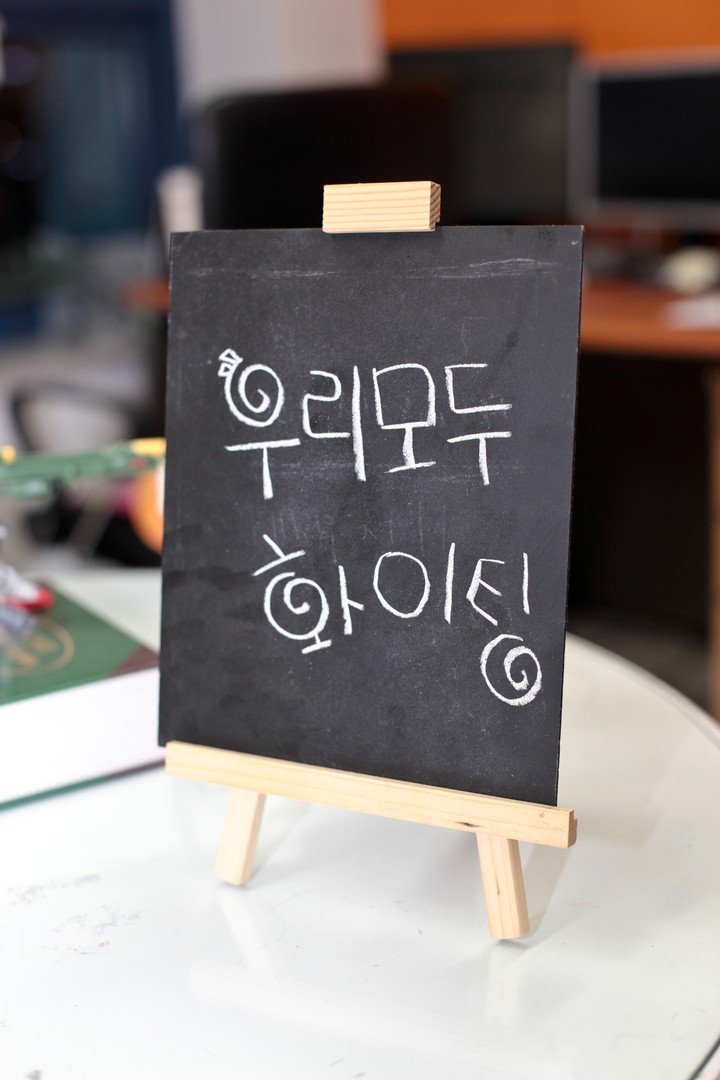 우리모두
화이팅